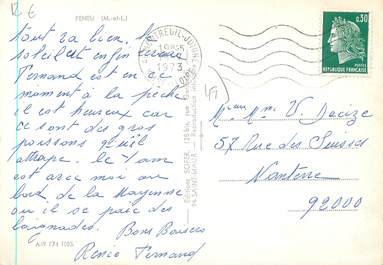 FENEU (M.-et-L.)
Tout va bien, le
soleil est enfin revenu
Fernand est en ce
moment à la pêche
il est heureux car
ce sont des gros
poissons qu'il
attrape. le 1 am
est avec moi au
bord de la Mayenne
ou il se paie des
baignades. Bons Baisers
Renée Fernand
MONTREUIL-JUIGNÉ
18H55
1973
0,30
POSTES
RÉPUBLIQUE FRANÇAISE
M. Mme V Decize
57 Rue des Suisses
Nanterre
92000